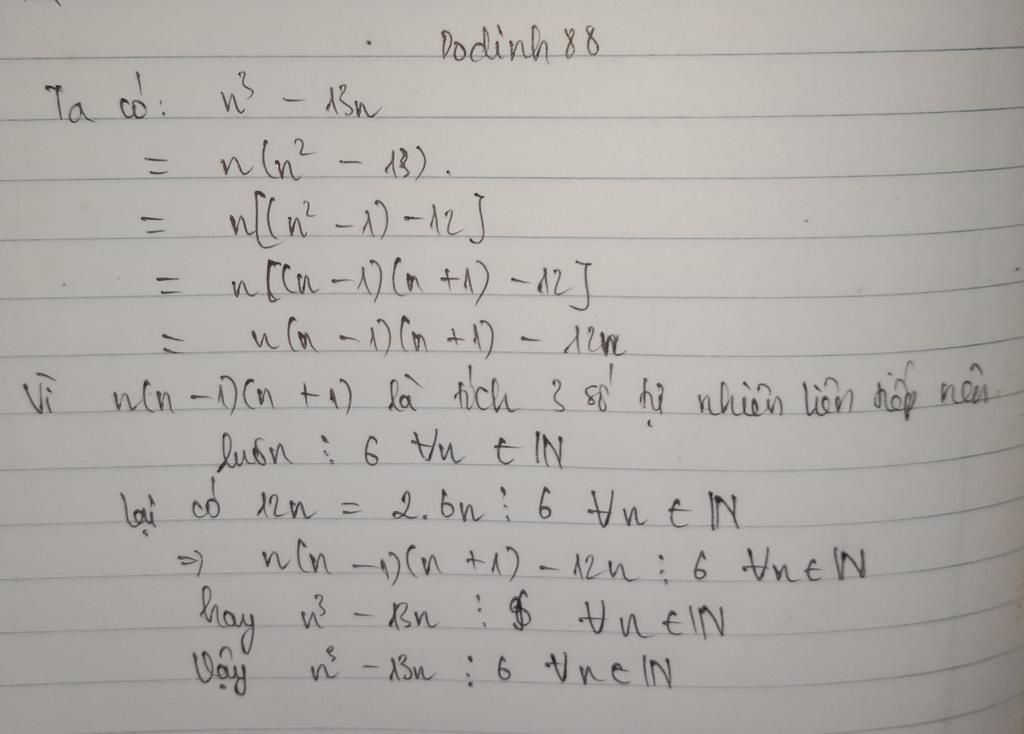 Dodinh 88
Ta có: n³ - 13n
= n(n² - 13).
= n[(n² - 1) - 12]
= n[(n - 1)(n + 1) - 12]
= n(n - 1)(n + 1) - 12n
Vì n(n - 1)(n + 1) là tích 3 số tự nhiên liên tiếp nên
luôn ⋮ 6 ∀n ∈ ℕ
lại có 12n = 2.6n ⋮ 6 ∀n ∈ ℕ
=> n(n - 1)(n + 1) - 12n ⋮ 6 ∀n ∈ ℕ
hay n³ - 13n ⋮ 6 ∀n ∈ ℕ
Vậy n³ - 13n ⋮ 6 ∀n ∈ ℕ